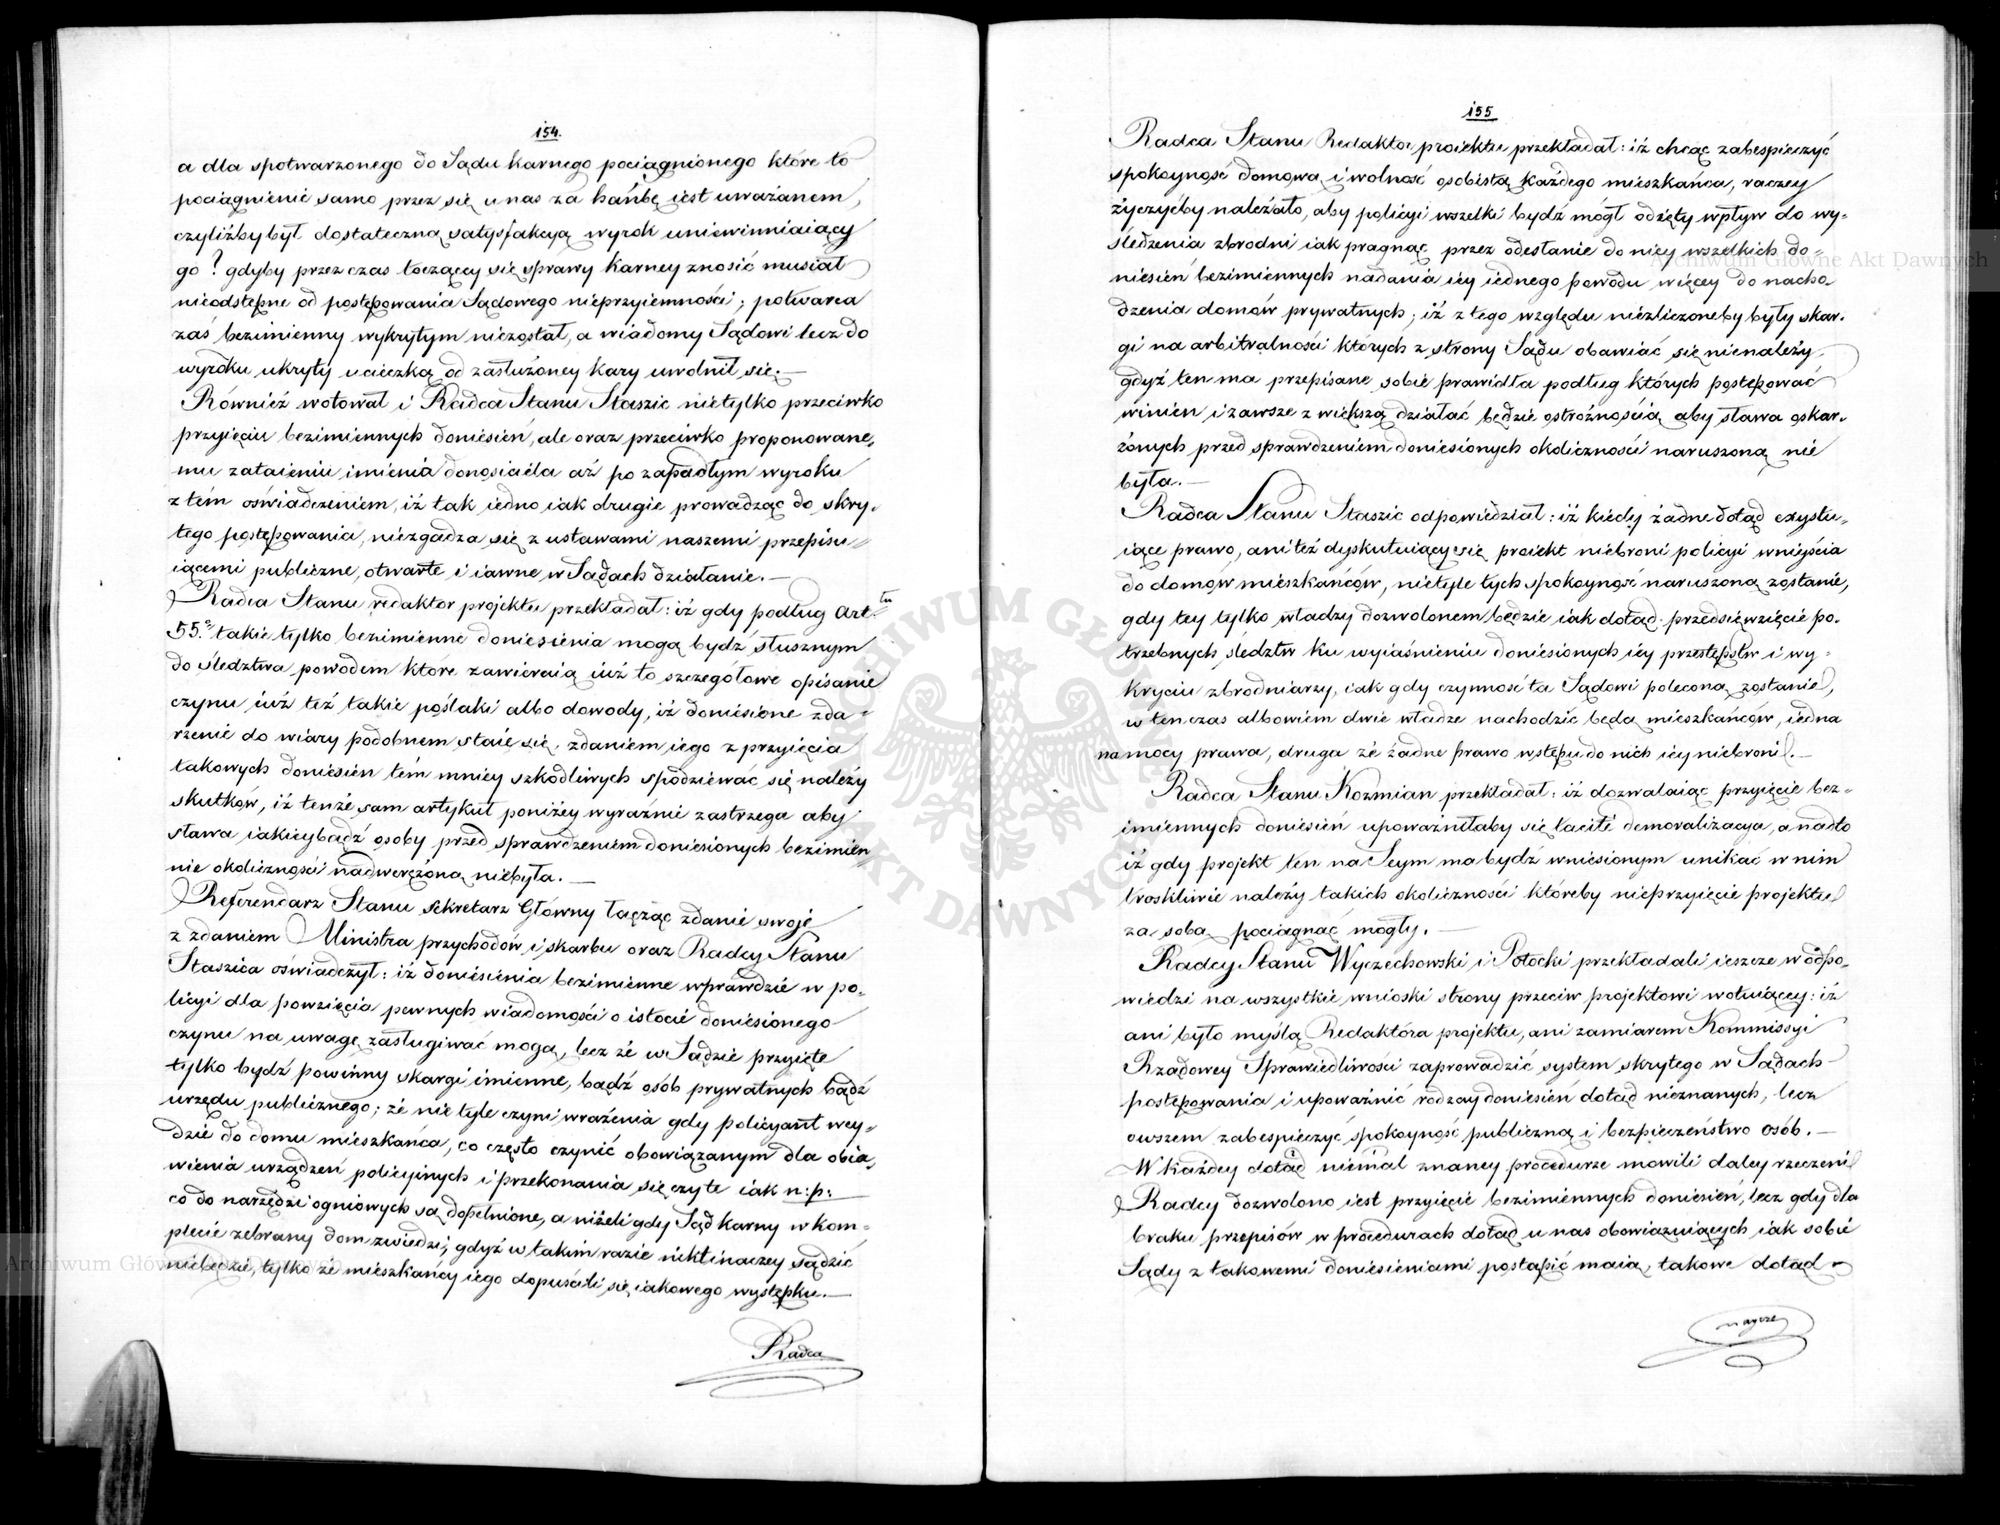 154.
a dla spotwarzonego do Sądu karnego pociągnionego które to
pociągnienie samo przez się u nas za hańbę iest uważanem,
czyliżby był dostateczną satysfakcyą wyrok uniewinniaiący
go? gdyby przez czas toczący się sprawy karney znosić musiał
nieodstępne od postępowania Sądowego nieprzyiemności; potwarca
zaś bezimienny wykrytym niezostał, a wiadomy Sądowi lecz do
wyroku ukryty ucieczką od zasłużoney kary uwolnił się.—
Również wotował i Radca Stanu Staszic nietylko przeciwko
przyięciu bezimiennych doniesień, ale oraz przeciwko proponowane,
mu zataieniu imienia donosiciela aż po zapadłym wyroku
z tem oświadczeniem, iż tak iedno iak drugie prowadząc do skry,
tego postępowania, niezgadza się z ustawami naszemi przepisu=
iącemi publiczne, otwarte i iawne w Sądach działanie.—
Radca Stanu redaktor projektu przekładał: iż gdy podług Art.łu
55.o takie tylko bezimienne doniesienia mogą bydź słusznym
do śledztwa powodem które zawieraią iuż to szczegółowe opisanie
czynu iuż też takie poślaki albo dowody, iż doniesione zda=
rzenie do wiary podobnem staie się, zdaniem iego z przyięcia
takowych doniesień tem mniey szkodliwych spodziewać się należy
skutków, iż tenże sam artykuł poniżey wyraźnie zastrzega aby
sława iakieybądź osoby przed sprawdzeniem doniesionych bezimien
nie okoliczności nadwerężoną niebyła.—
Referendarz Stanu Sekretarz Główny łącząc zdanie swoje
z zdaniem Ministra przychodów i skarbu oraz Radcy Stanu
Staszica oświadczył: iż doniesienia bezimienne wprawdzie w po=
licyi dla powzięcia pewnych wiadomości o istocie doniesionego
czynu na uwagę zasługiwać mogą, lecz że w Sądzie przyięte
tylko bydź powinny skargi imienne, bądź osób prywatnych bądź
urzędu publicznego; że nie tyle czyni wrażenia gdy policyant wey=
dzie do domu mieszkańca, co często czynić obowiązanym dla obia,
wienia urządzeń policyinych i przekonania się czyte iak n:p:
co do narzędzi ogniowych są dopełnione, a niżeli gdy Sąd karny w kom=
plecie zebrany dom zwiedzi; gdyż w takim razie nikt inaczey sądzić
niebędzie, tylko że mieszkańcy iego dopuścili się iakowego występku.—
Radca
155
Radca Stanu Redaktor proiektu przekładał: iż chcąc zabespieczyć
spokoyność domową i wolność osobistą każdego mieszkańca, raczey
życzyćby należało, aby policyi wszelki bydź mógł odięty wpływ do wy=
śledzenia zbrodni iak pragnąc przez odesłanie do niey wszelkich do=
niesień bezimiennych nadania iey iednego powodu więcey do nacho=
dzenia domów prywatnych; iż z tego względu niezliczoneby były skar=
gi na arbitralności których z strony Sądu obawiać się nienależy,
gdyż ten ma przepisane sobie prawidła podług których postępować
winien i zawsze z większą działać będzie ostrożnością aby sława oskar=
żonych przed sprawdzeniem doniesionych okoliczności naruszoną nie
była.—
Radca Stanu Staszic odpowiedział: iż kiedy żadne dotąd exystu=
iące prawo, ani też dyskutuiący się proiekt niebroni policyi wniyścia
do domów mieszkańców, nietyle tych spokoyność naruszoną zostanie,
gdy tey tylko władzy dozwolonem będzie iak dotąd przedsięwzięcie po=
trzebnych śledztw ku wyiaśnieniu doniesionych iey przestępstw i wy=
kryciu zbrodniarzy, iak gdy czynność ta Sądowi poleconą zostanie,
w ten czas albowiem dwie władze nachodzić będą mieszkańców, iedna
na mocy prawa, druga że żadne prawo wstępu do nich iey niebroni.—
Radca Stanu Kozmian przekładał: iż dozwalaiąc przyięcie bez=
imiennych doniesień upoważniłaby się tacite demoralizacya, a nadto
iż gdy projekt ten na Seym ma bydź wniesionym unikać w nim
troskliwie należy takich okoliczności któreby nieprzyięcie projektu
za sobą pociągnąć mogły.—
Radcy Stanu Wyczechowski i Potocki przekładali ieszcze w odpo=
wiedzi na wszystkie wnioski strony przeciw projektowi wotuiącey: iż
ani było myślą Redaktora projektu, ani zamiarem Kommissyi
Rządowey Sprawiedliwości zaprowadzić system skrytego w Sądach
postępowania i upoważnić rodzay doniesień dotąd nieznanych, lecz
owszem zabespieczyć spokoyność publiczną i bezpieczeństwo osób.—
W każdey dotąd niemal znaney procedurze mówili daley rzeczeni
Radcy dozwolono iest przyięcie bezimiennych doniesień, lecz gdy dla
braku przepisów w procedurach dotąd u nas obowiązuiących iak sobie
Sądy z takowemi doniesieniami postąpić maią, takowe dotąd
nayczę